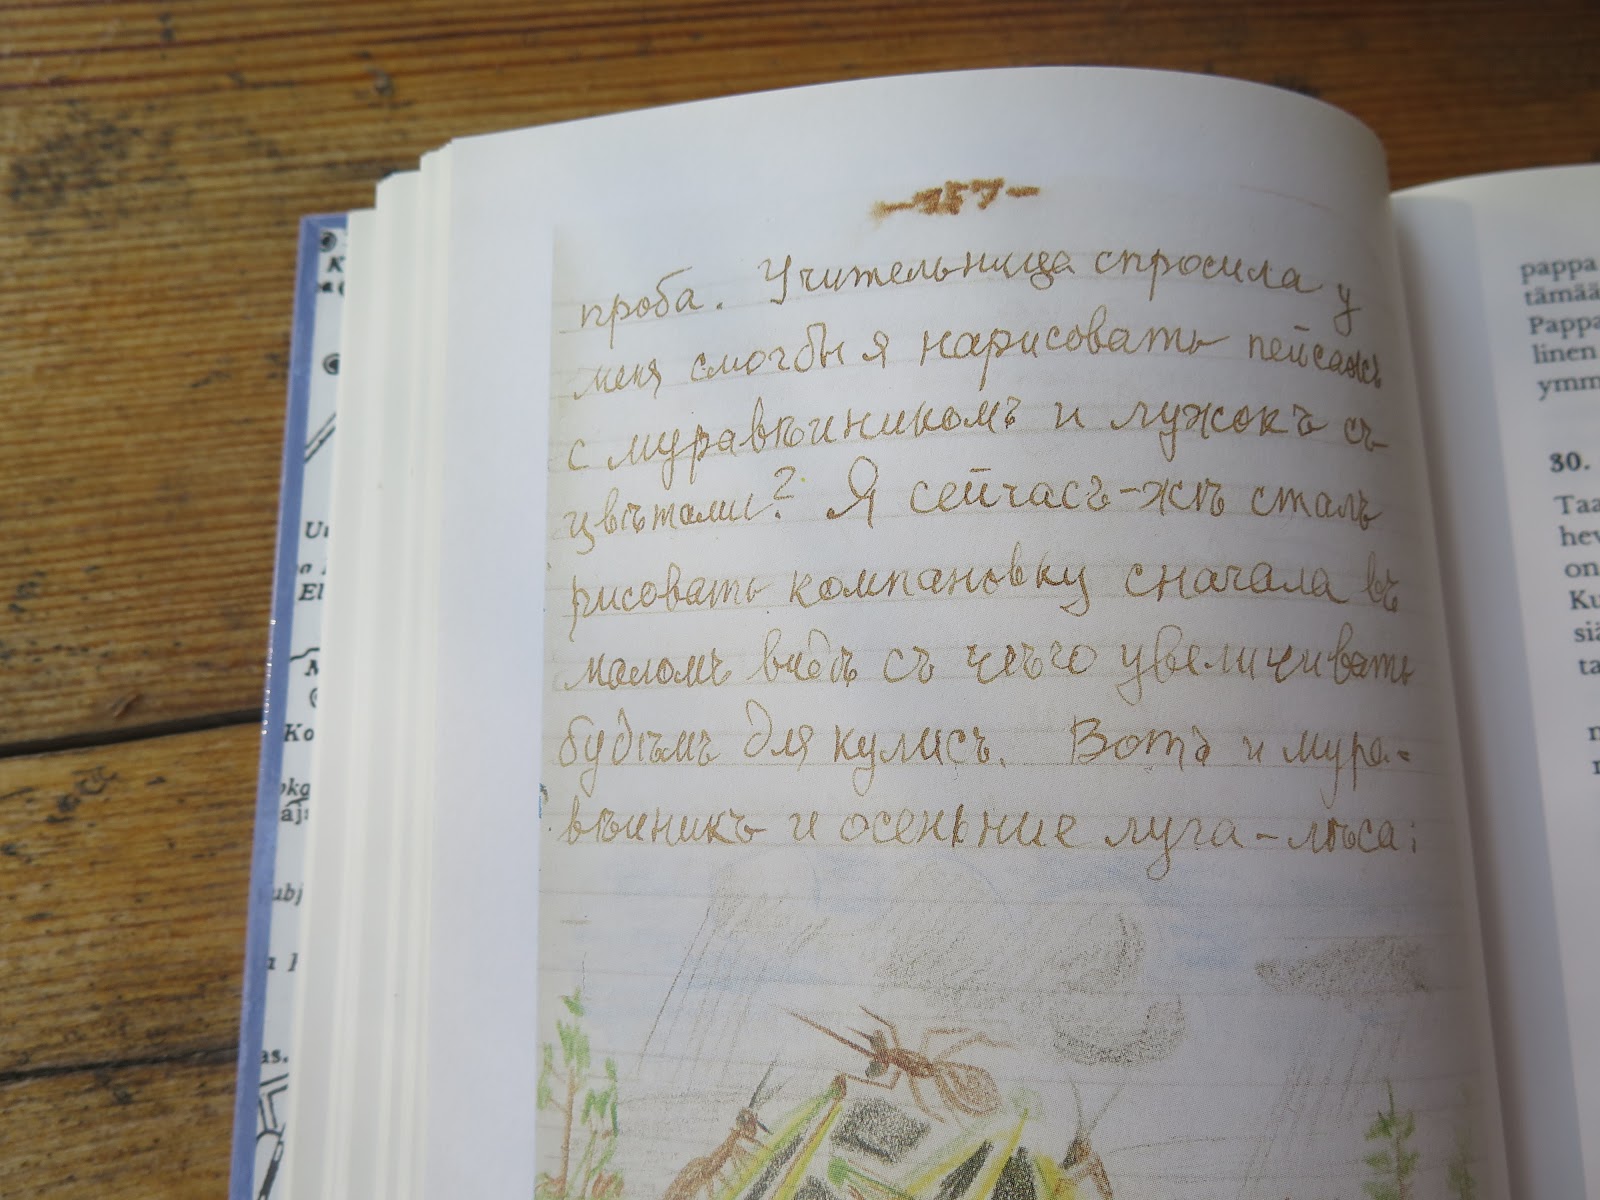 -157-
проба. Учительница спросила у
меня смогбы я нарисовать пейсажъ
с муравѣиникомъ и лужокъ съ
цвѣтами? Я сейчасъ-жѣ сталъ
рисовать компановку сначала въ
маломъ видѣ съ чѣго увеличивать
будѣмъ для кулисъ. Вотъ и мура=
вѣиникъ и осеньние луга-лѣса:
pappa
tämää
Pappa
linen
ymm
30.
Taa
hev
on
Ku
siä
ta
El
Ko
ubj
as.